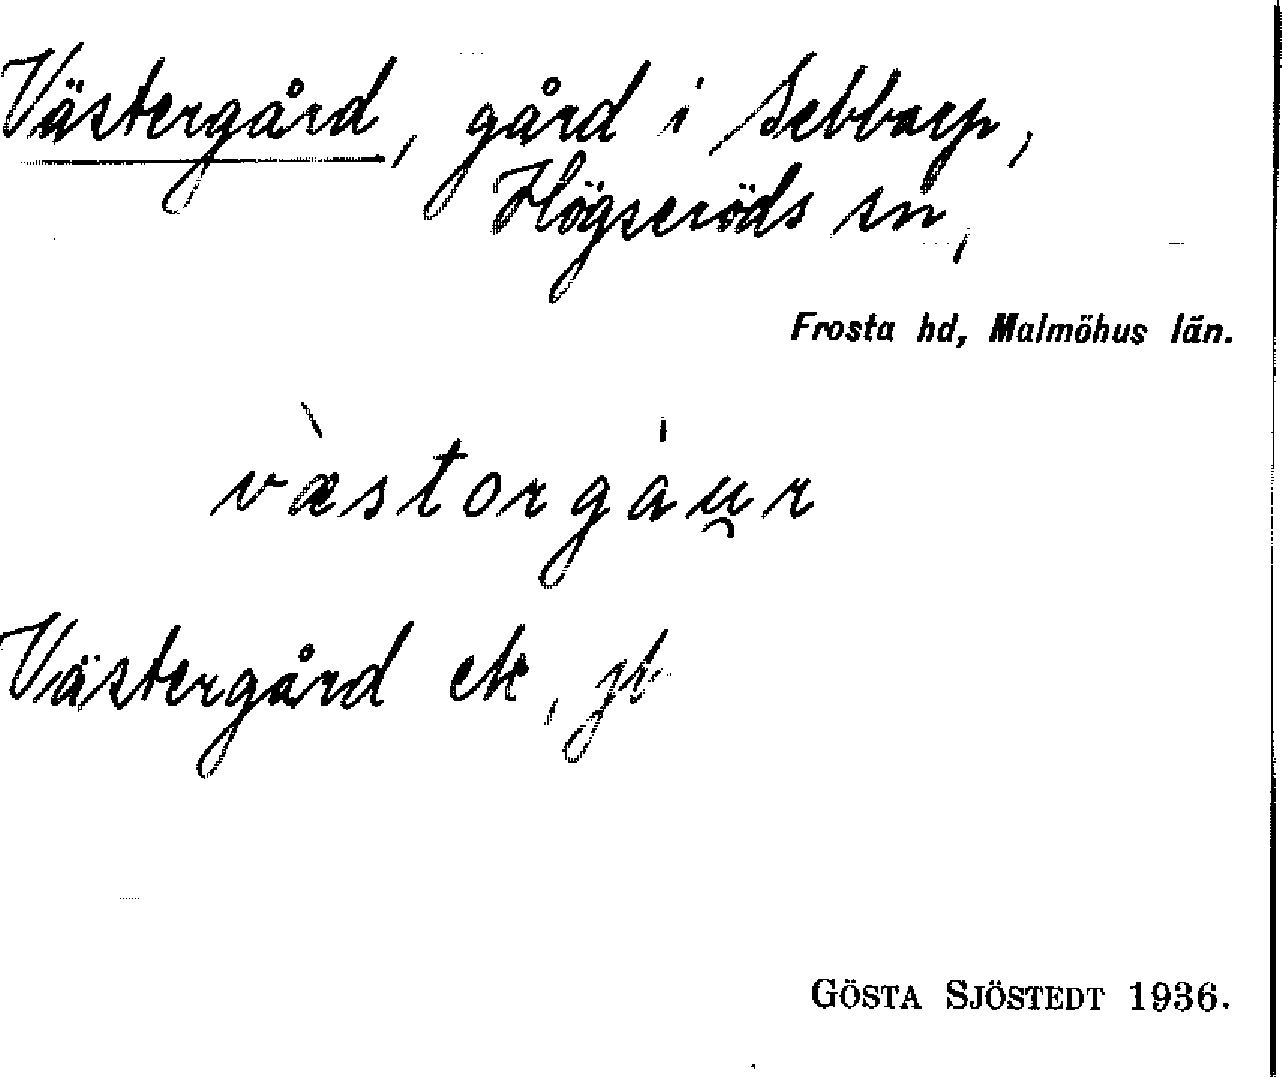 Västergård, gård i Sebbarp,
Högseröds sn,
Frosta hd, Malmöhus län.
væ̀storgáu̯r
Västergård ek,
GÖSTA SJÖSTEDT 1936.